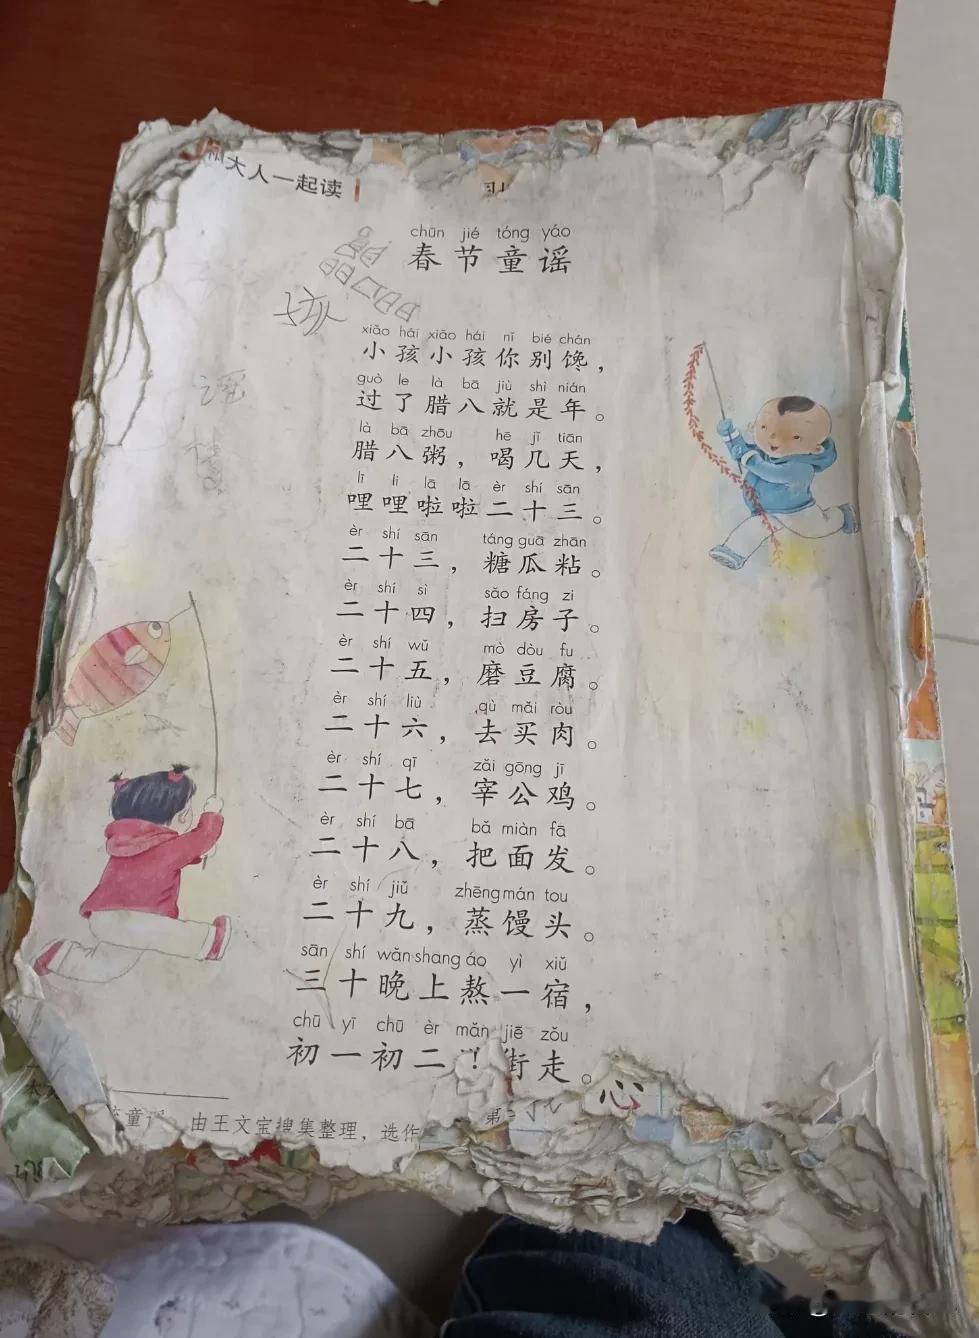 和大人一起读
chūn jié tóng yáo
春节童谣
xiǎo hái xiǎo hái nǐ bié chán
小孩小孩你别馋，
guò le là bā jiù shì nián
过了腊八就是年。
là bā zhōu hē jǐ tiān
腊八粥，喝几天，
lī li lā lā èr shí sān
哩哩啦啦二十三。
èr shí sān táng guā zhān
二十三，糖瓜粘。
èr shí sì sǎo fáng zi
二十四，扫房子。
èr shí wǔ mò dòu fu
二十五，磨豆腐。
èr shí liù qù mǎi ròu
二十六，去买肉。
èr shí qī zǎi gōng jī
二十七，宰公鸡。
èr shí bā bǎ miàn fā
二十八，把面发。
èr shí jiǔ zhēng mán tou
二十九，蒸馒头。
sān shí wǎn shang áo yì xiǔ
三十晚上熬一宿，
chū yī chū èr mǎn jiē zǒu
初一初二 街走。
童 由王文宝搜集整理，选作
第
心
孩
谣